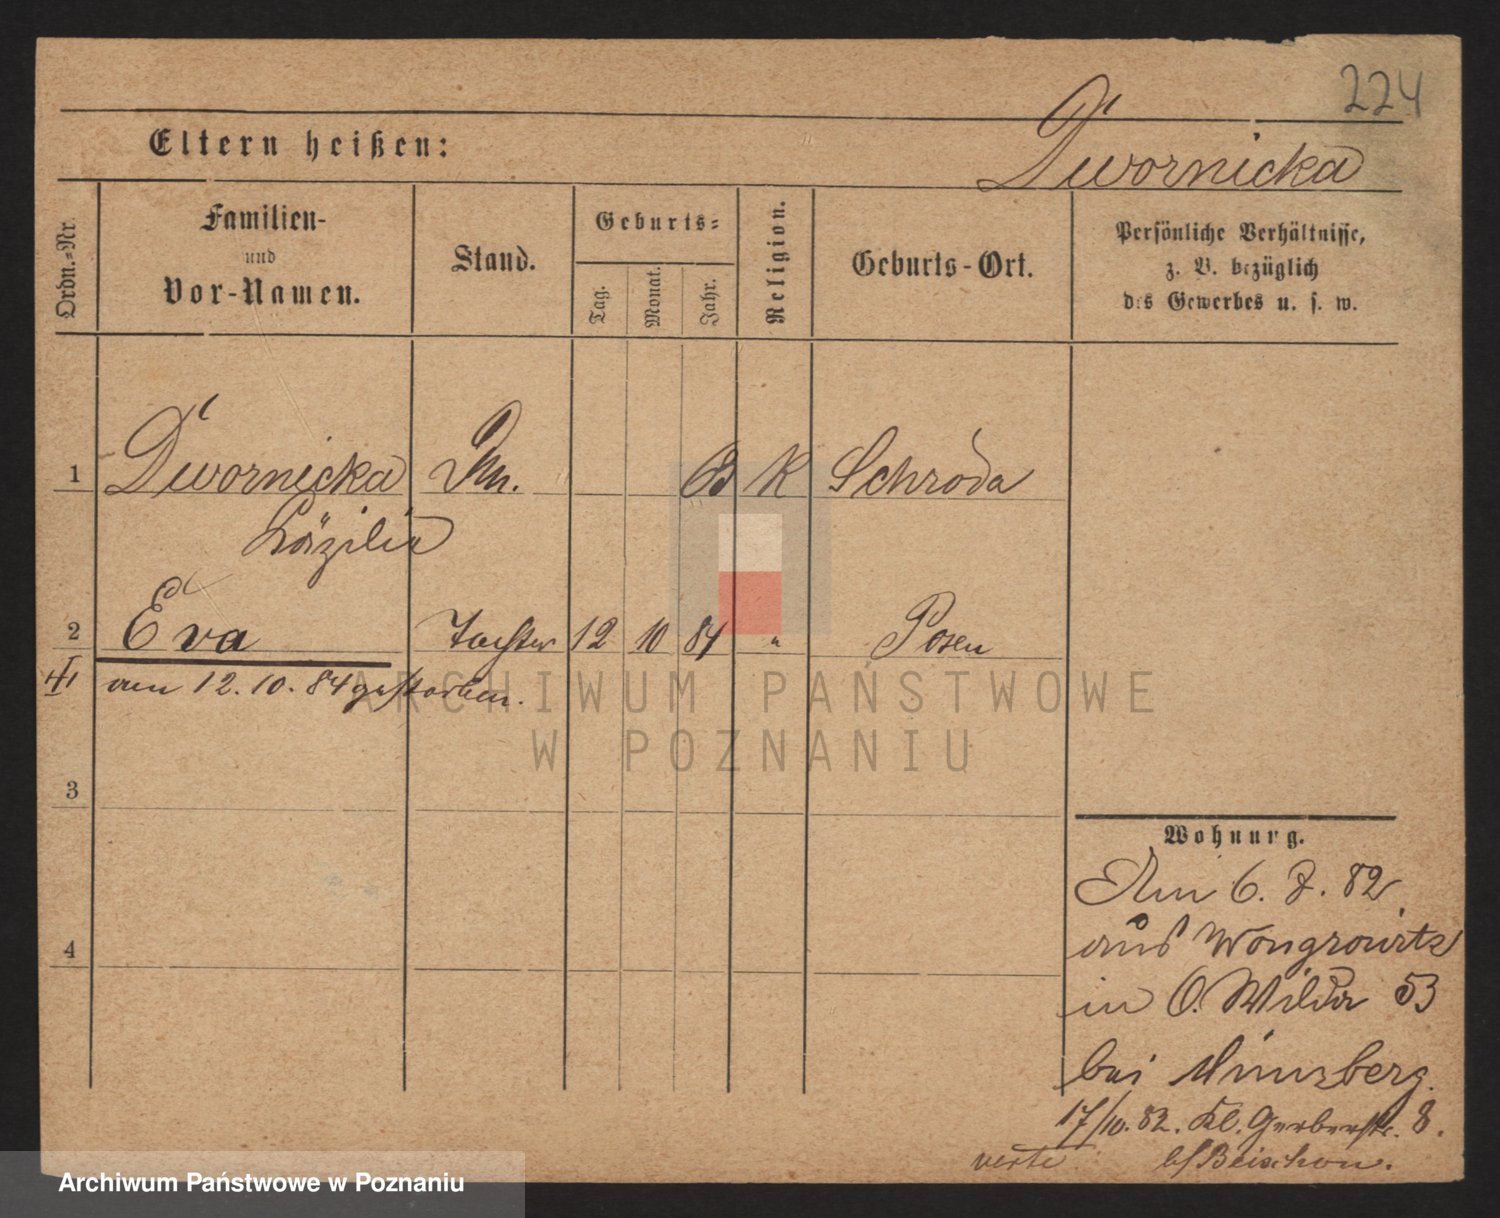 224
Eltern heißen:
Dwornicka
Ordn.=Nr.
Familien-
und
Vor-Namen.
Stand.
Geburts=
Tag.
Monat.
Jahr.
Religion.
Geburts-Ort.
Persönliche Verhältnisse,
z. B. bezüglich
des Gewerbes u. s. w.
1 Dwornicka 63 K Schroda
Cäzilie
2 Eva Tochter 12 10 84 " Posen
am 12. 10. 84 gestorben.
3
4
Wohnung.
Am 6. 7. 82
aus Wongrowitz
in O. Wilda 53
bei Münzberg.
17/10. 82. Kl. Gerberstr. 8.
verte
ARCHIWUM PAŃSTWOWE
W POZNANIU
Archiwum Państwowe w Poznaniu